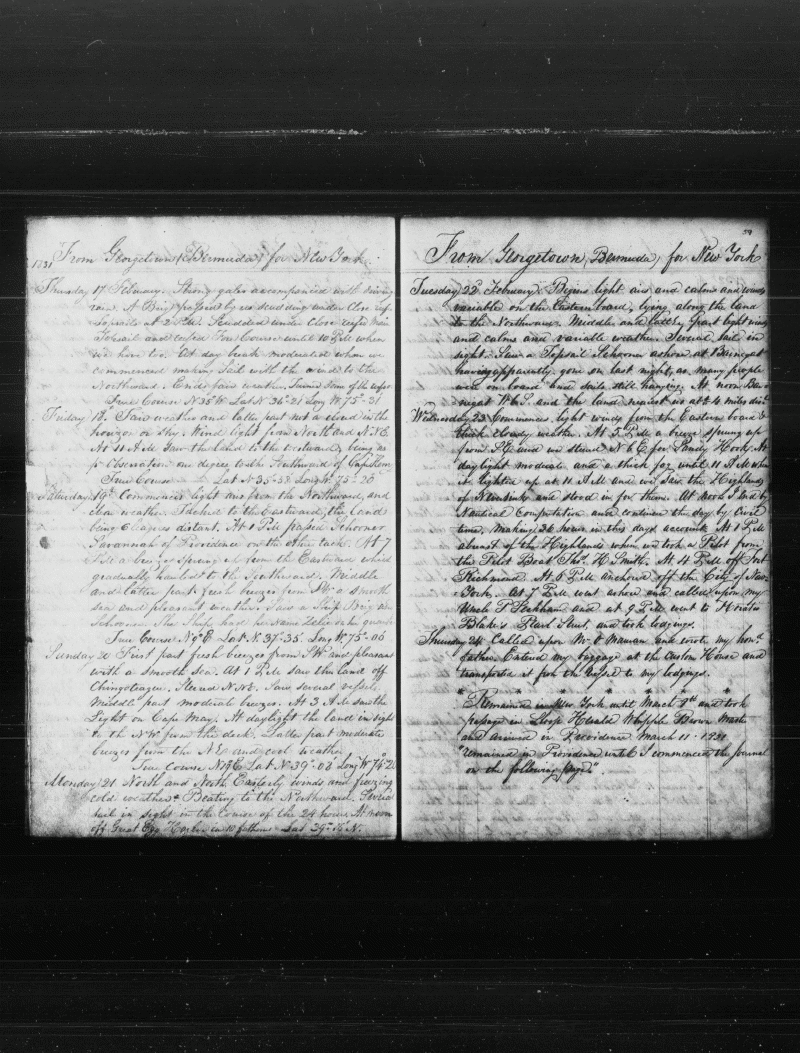 1831 From Georgetown (Bermuda) for New York
Thursday 17 February. Strong gales accompanied with driving
rain. A Brig passed by us scudding under Close reef
Topsails at 2 P.M. Scudded under Close reefed Main
Topsail and reefed Fore Course until 10 P.M when
we hove too. At day break moderated when we
commenced making Sail with the wind to the
Northward. Ends fair weather.
True Course N 35 W Lat N 36-21 Long W. 75-31
Friday 18. Fair weather and latter part not a cloud in the
horizon or sky. Wind light from North and N.N.E.
At 11 A.M. Saw the land to the westward, being as
pr observation one degree to the Southward of Cape Hen
True Course Lat N 35-58 Long W. 75-20
Saturday 19th Commences light airs from the Northward, and
clear weather. Tacked to the Eastward, the land
being 6 leagues distant. At 1 P.M passed Schooner
Savannah of Providence on the other tack. At 7
P.M a breeze sprung up from the Eastward which
gradually hauled to the Southward. Middle
and latter part fresh breezes from SW a smooth
sea and pleasant weather. Saw a Ship Brig and
Schooner. The Ship had her Name
True Course N 9° E Lat. N. 37-35. Long W 75-06
Sunday 20 First part fresh breezes from SW and pleasant
with a smooth sea. At 1 P.M saw the land off
Chingoteague. Steered N.N.E. Saw several vessels.
Middle part moderate breezes. At 3 A.M saw the
Light on Cape May. At daylight the land in sight
to the N.W from the deck. Latter part moderate
breezes from the N.E and cool weather
True Course N 19 E Lat. N 39°-03 Long W 74-20
Monday 21 North and North Easterly winds and freezing
cold weather. Beating to the Northward. Several
sail in sight in the Course of the 24 hours. At noon
off Great Egg Harbor in 10 fathoms Lat 39°-16 N.
59
From Georgetown (Bermuda) for New York
Tuesday 22d February. Begins light airs and calms and winds
variable on the Eastern board, lying along the land
to the Northward. Middle and latter part light winds
and calms and variable weather. Several sail in
sight. Saw a Topsail Schooner ashore at Barnegat
having apparently gone on last night, as many people
were on board and sails still hanging. At noon Bar-
negat W b S. and the land nearest us at 4 miles dist
Wednesday 23 Commences light winds from the Eastern board &
thick cloudy weather. At 5 P.M a breeze sprung up
from S.E and we steered N b E for Sandy Hook. At
day light moderate and a thick fog until 11 A.M when
it lighted up at 11 A.M and we saw the Highlands
of Neversink and stood in for them. At Noon I end by
Nautical Computation and continue the day by Civil
time, making 36 hours in this days account. At 1 P.M
abreast of the Highlands when we took a Pilot from
the Pilot Boat Thos. H. Smith. At 4 P.M off Fort
Richmond. At 5 P.M anchored off the City of New-
York. At 7 P.M went ashore and called upon my
Uncle T. Peckham and at 9 P.M went to Horatio
Blake's Pearl Street, and took lodgings.
Thursday 24 Called upon Mr. and wrote my hond.
father. Entered my baggage at the Custom House and
transported it from the Gipsee to my lodgings.
* * * * * * * * *
Remained in New York until March 9th and took
passage in Sloop Whipple Brown Master
and arrived in Providence March 11. 1831
"Remained in Providence until I commenced the Journal
on the following page".